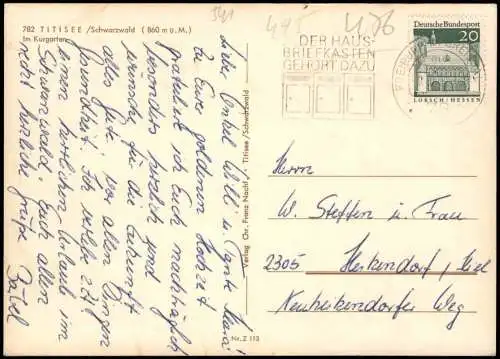 782 TITISEE /Schwarzwald (860 m ü. M.)
Im Kurgarten
541
445
DER HAUS-
BRIEFKASTEN
GEHÖRT DAZU
Deutsche Bundespost
20
LORSCH / HESSEN
Liebe Onkel Willi u. Tante Maria!
Zu Eure goldenen Hochzeit
gratuliere ich Euch nachträglich
besonders herzlich und
wünsche für die Zukunft
alles Gute, vor allen Dingen
Gesundheit. Ich verlebe z. Zt.
einen herrlichen Urlaub im
Schwarzwald. Euch allen
recht herzliche Grüße
Verlag Chr. Franz Nachf. Titisee /Schwarzwald
Nr. Z 113
Herrn
W. Steffen u. Frau
2305 Heikendorf, Kiel
Neuheikendorfer Weg